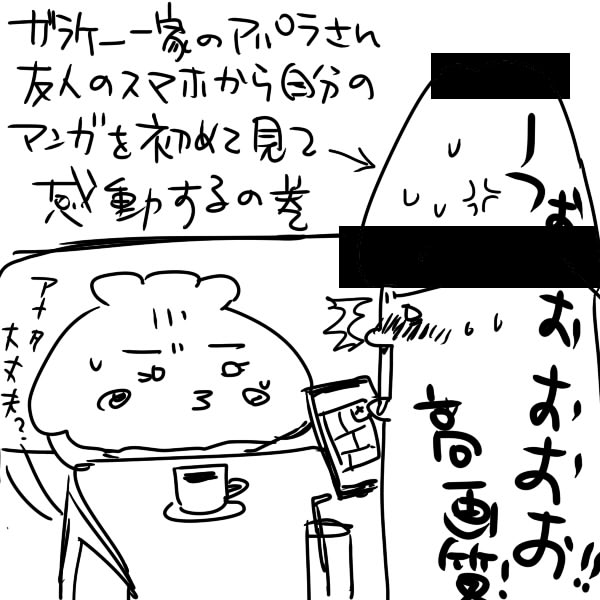 ガラケー一家のアパラさん
友人のスマホから自分の
マンガを初めて見て
感動するの巻
うおおおおお!!
高画質!
アナタ
大丈夫?